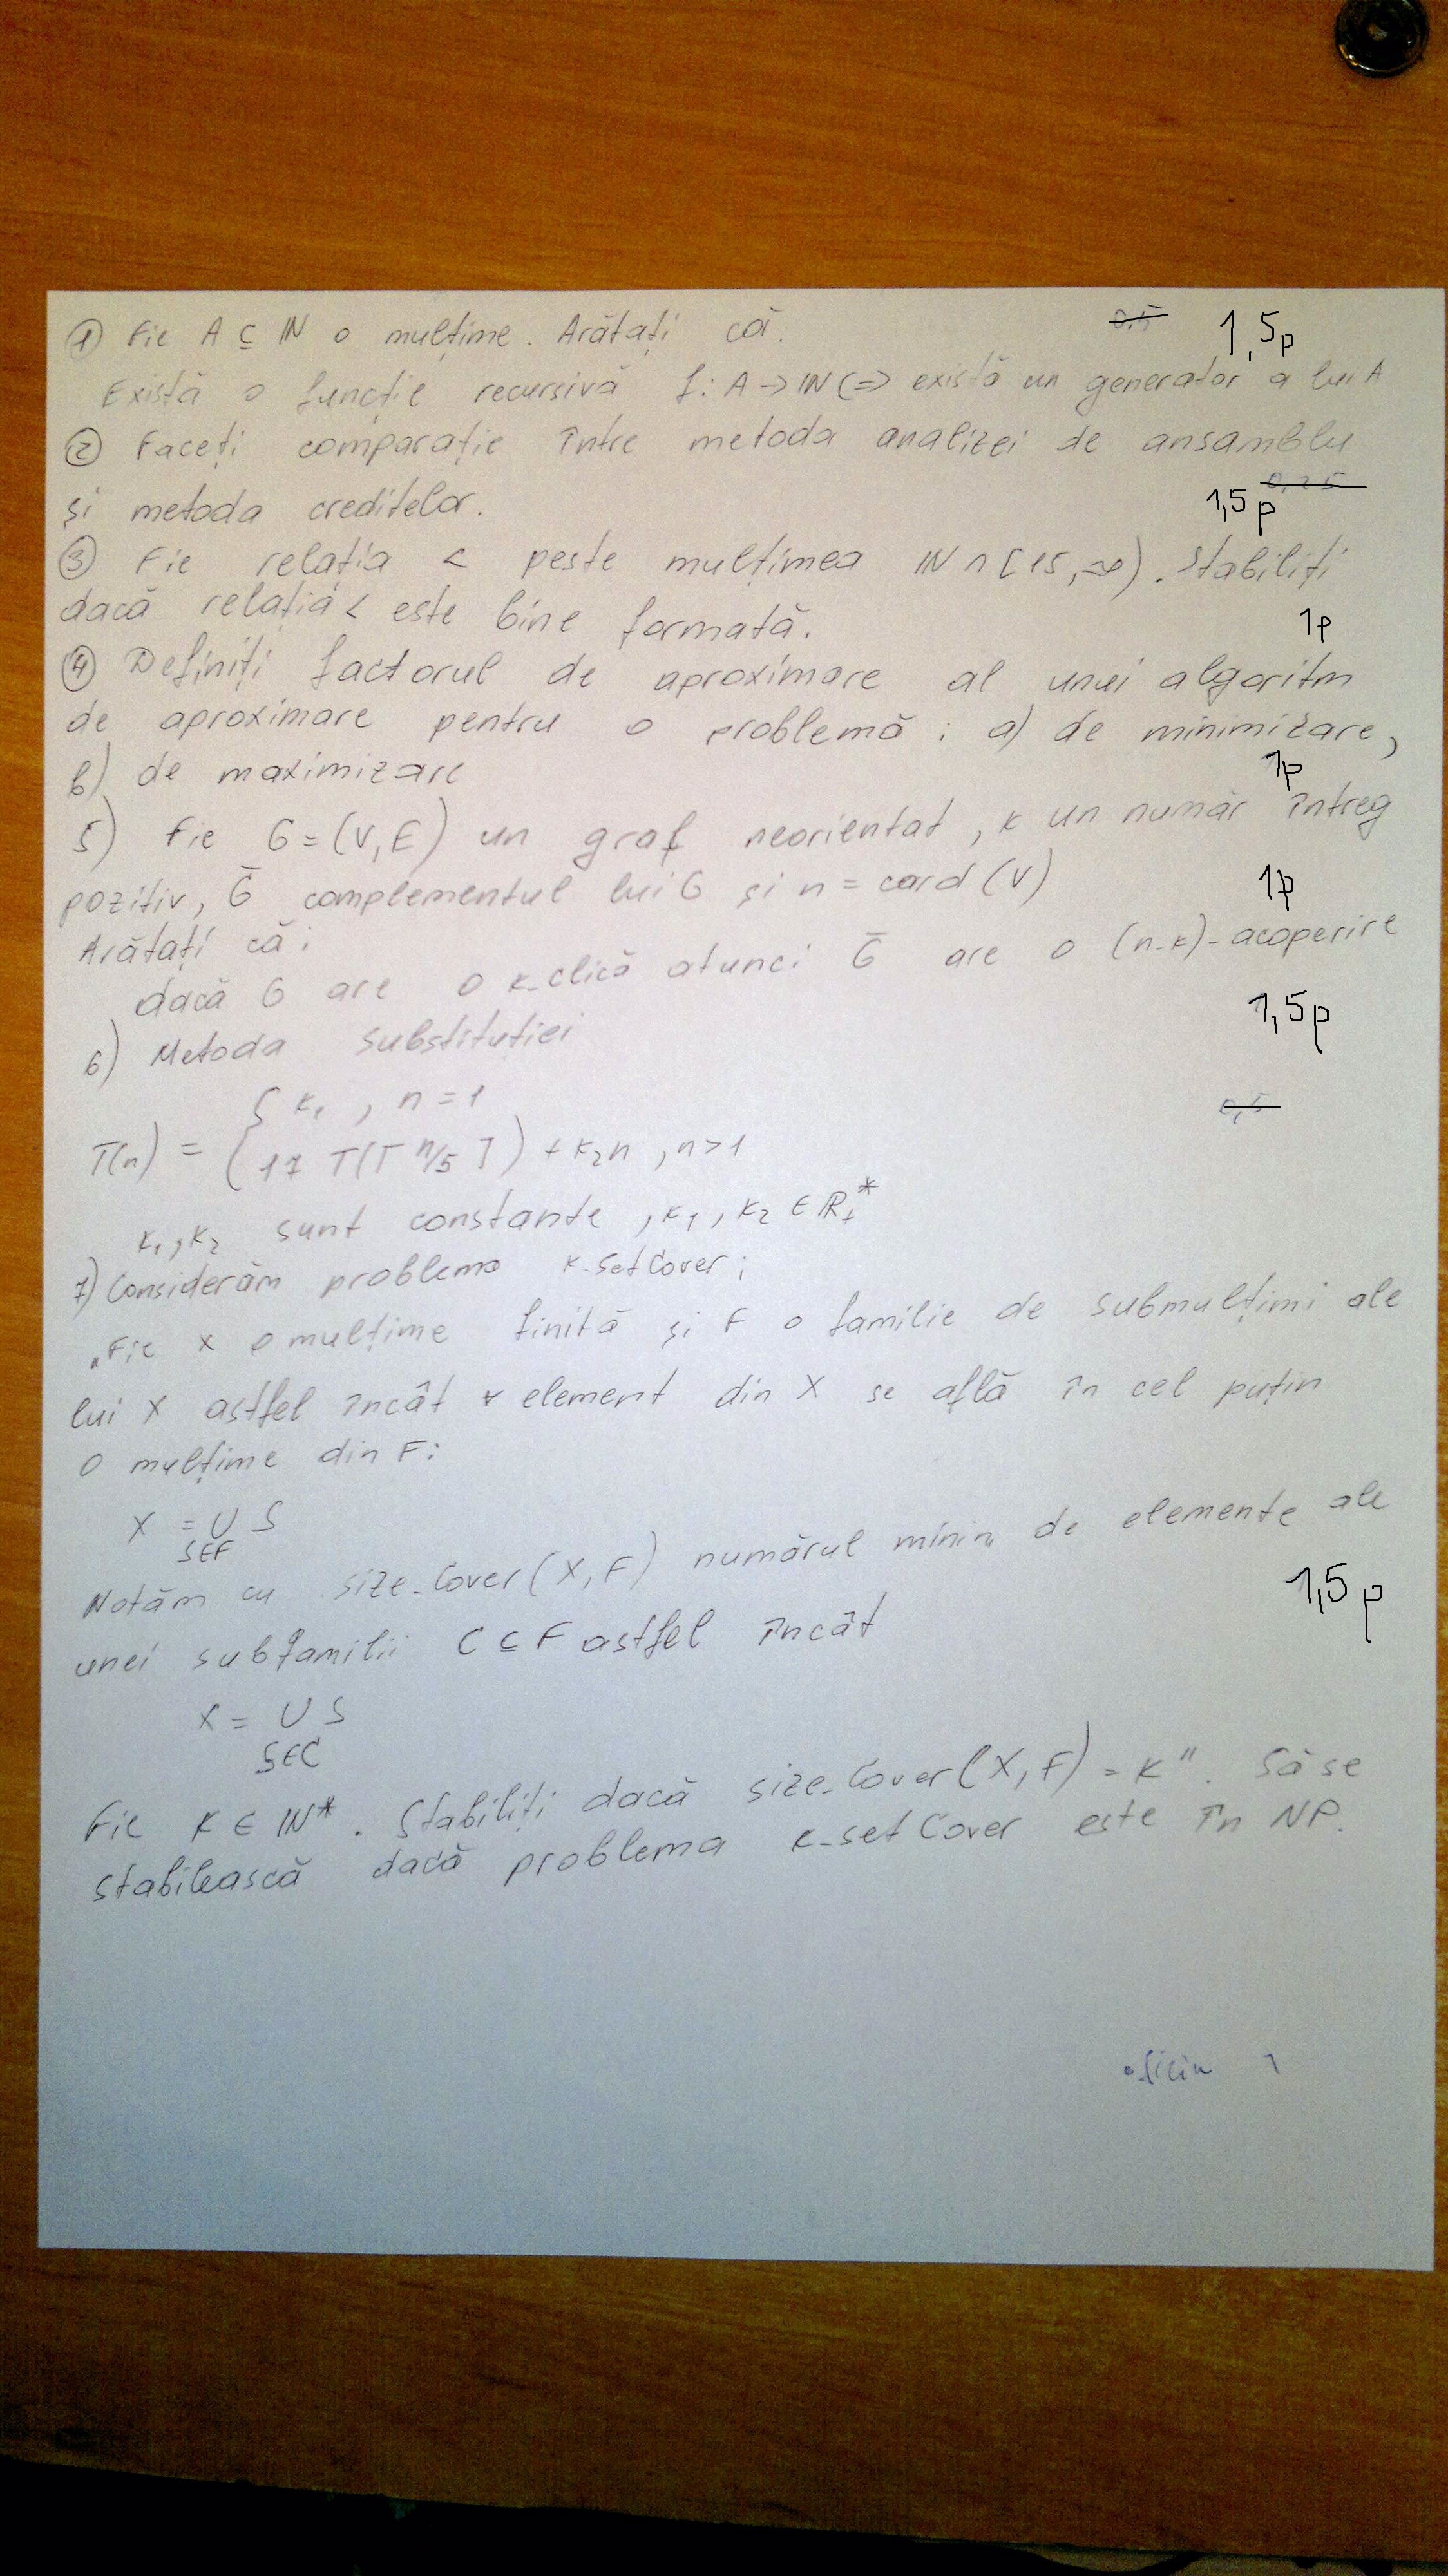 ① Fie A ⊆ ℕ o mulțime. Arătați că. 0,5 1,5p
Există o funcție recursivă f: A → ℕ (=> există un generator a lui A
② Faceți comparație între metoda analizei de ansamblu
și metoda creditelor. 1,5p 0,25
③ Fie relația < peste mulțimea ℕ ∩ [15, ∞). Stabiliți
dacă relația < este bine formată. 1p
④ Definiți factorul de aproximare al unui algoritm
de aproximare pentru o problemă: a) de minimizare,
b) de maximizare 1p
5) Fie G = (V, E) un graf neorientat, k un număr întreg
pozitiv, Ḡ complementul lui G și n = card (V) 1p
Arătați că:
dacă G are o k-clică atunci Ḡ are o (n-k)-acoperire
6) Metoda substitutiei 1,5p
T(n) = { k₁, n = 1
17 T(⌈n/5⌉) + k₂n, n > 1 0,5
k₁, k₂ sunt constante, k₁, k₂ ∈ ℝ₊*
7) Considerăm problema k-setCover:
„Fie x o mulțime finită și F o familie de submulțimi ale
lui X astfel încât ∀ element din X se află în cel puțin
o mulțime din F:
X = ∪ S
S∈F
Notăm cu size-Cover(X, F) numărul minim de elemente ale
unei subfamilii C ⊆ F astfel încât 1,5p
X = ∪ S
S∈C
Fie k ∈ ℕ*. Stabiliți dacă size-Cover(X, F) = k". Să se
stabilească dacă problema k-set Cover este în NP.
oficiu 1